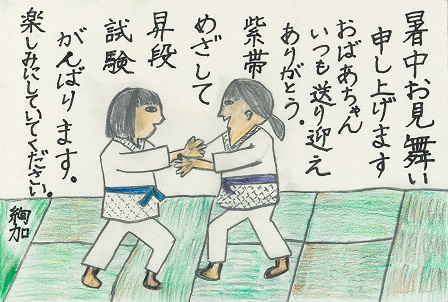 暑中お見舞い
申し上げます
おばあちゃん
いつも送り迎え
ありがとう。
紫帯
めざして
昇段
試験
がんばります。
楽しみにしていてください。
絢加